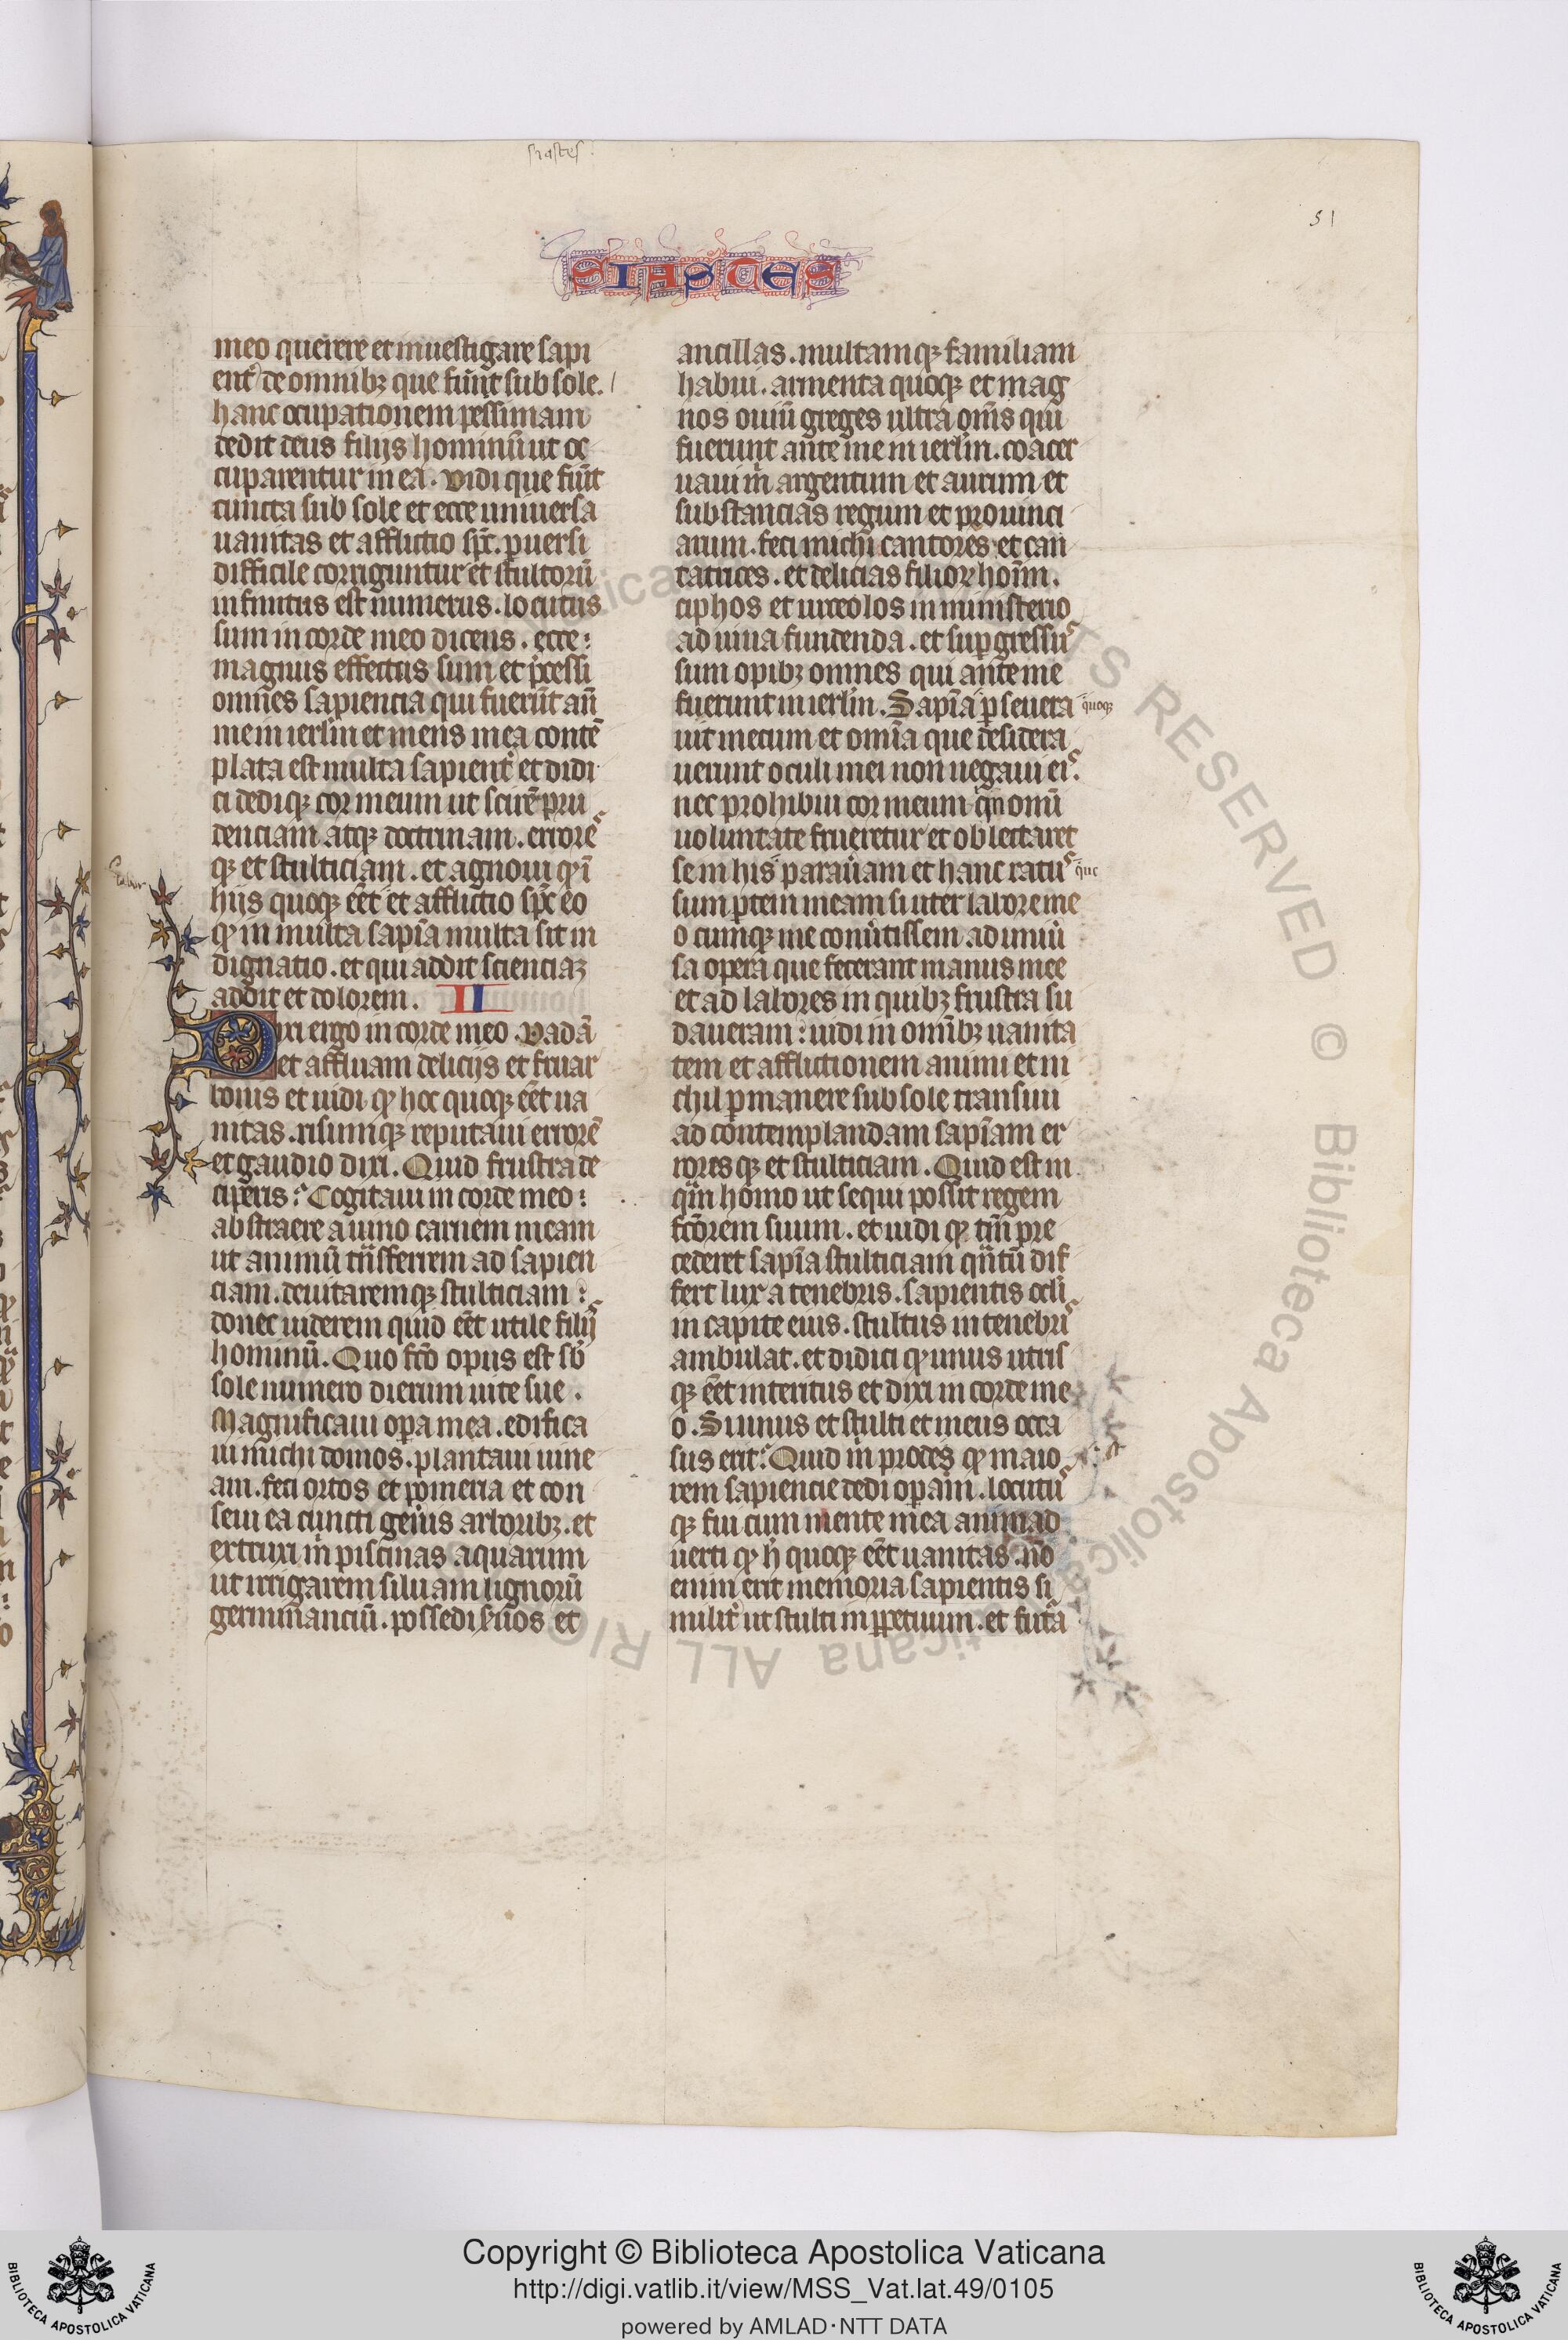 siastes
51
SIASTES
meo querere et inuestigare sapi
ent͛ de omnibꝫ que fiunt sub sole.
hanc ocupationem pessimam
dedit deus filijs hominū ut oc
cuparentur in ea. vidi que fiūt
cuncta sub sole et ecce uniuersa
uanitas et afflictio sp̄c. ꝑuersi
difficile corriguntur et stultorū
infinitus est numerus. locutus
sum in corde meo dicens. ecce:
magnus effectus sum et p̄cessi
omnes sapiencia qui fuerūt an̄
me in ierlm̄ et mens mea contē
plata est multa sapient͛ et didi
ci dediqꝫ cor meum ut scirē pru
denciam atqꝫ doctrinam. errore᷒
qꝫ et stulticiam. et agnoui ꝙ ī
hiis quoqꝫ eēt et afflictio sp̄c eo
ꝙ in multa sapīa multa sit in
dignatio. et qui addit scienciaꝫ
addit et dolorem. II
Dixi ergo in corde meo. vadā
et affluam delicijs et fruar
bonis et uidi ꝙ hoc quoqꝫ eēt ua
nitas. risumqꝫ reputaui errorē
et gaudio dixi. Quid frustra de
ciperis? Cogitaui in corde meo:
abstraere a uino carnem meam
ut animū tn̄sferrem ad sapien
ciam. deuitaremqꝫ stulticiam:
donec uiderem quid eēt utile filij᷒
hominū. Quo fc̄o opus est sb̄
sole numero dierum uite sue.
Magnificaui oꝑa mea. edifica
ui michi domos. plantaui uine
am. feci ortos et pomeria et con
seui ea cuncti gen̄is arboribꝫ. et
extruxi m̄ piscinas aquarum
ut irrigarem siluam lignorū
germinanciū. possedi s̄uos et
ancillas. multamqꝫ familiam
habui. armenta quoqꝫ et mag
nos ouiū greges ultra om̄s qui
fuerunt ante me in ierlm̄. coacer
uaui m̄ argentum et aurum et
substancias regum et prouinci
arum. feci michi cantores et can
tatrices. et delicias filioꝝ hoīm.
ciphos et urceolos in ministerio
ad uina fundenda. et suꝑgressu᷒
sum opibꝫ omnes qui ante me
fuerunt in ierlm̄. Sapīa ꝑseuera
quoqꝫ
uit mecum et om̄ia que desidera
uerunt oculi mei non negaui ei᷒.
nec prohibui cor meum qn̄ omī
uoluntate frueretur et oblectaret
se in his parau̓am et hanc ratu᷒
que
sum ꝑtem meam si uter labore me
o cumqꝫ me conu̓tissem ad uniu̓
sa opera que fecerant manus mee
et ad labores in quibꝫ frustra su
daueram: uidi in omībꝫ uanita
tem et afflictionem animi et ni
chil ꝑmanere sub sole transiui
ad contemplandam sapīam er
rores qꝫ et stulticiam. Quid est in
qm̄ homo ut sequi possit regem
fc̄orem suum. et uidi ꝙ tm̄ pre
cederet sapīa stulticiam qn̄tū dif
fert lux a tenebris. sapientis ocl̄i
in capite eius. stultus in tenebri᷒
ambulat. et didici ꝙ unus utris
qꝫ eēt interitus et dixi in corde me
o. Si unus et stulti et meus occa
sus erit: Quid m̄ prodest ꝙ maio
rem sapiencie dedi oꝑam. locutu᷒
qꝫ fui cum mente mea animad
uerti ꝙ h̄ quoqꝫ eēt uanitas. nō
enim erit memoria sapientis si
milit͛ ut stulti in ꝑpetuum. et fut͛a
Copyright © Biblioteca Apostolica Vaticana
http://digi.vatlib.it/view/MSS_Vat.lat.49/0105
powered by AMLAD·NTT DATA
BIBLIOTECA APOSTOLICA VATICANA
BIBLIOTECA APOSTOLICA VATICANA